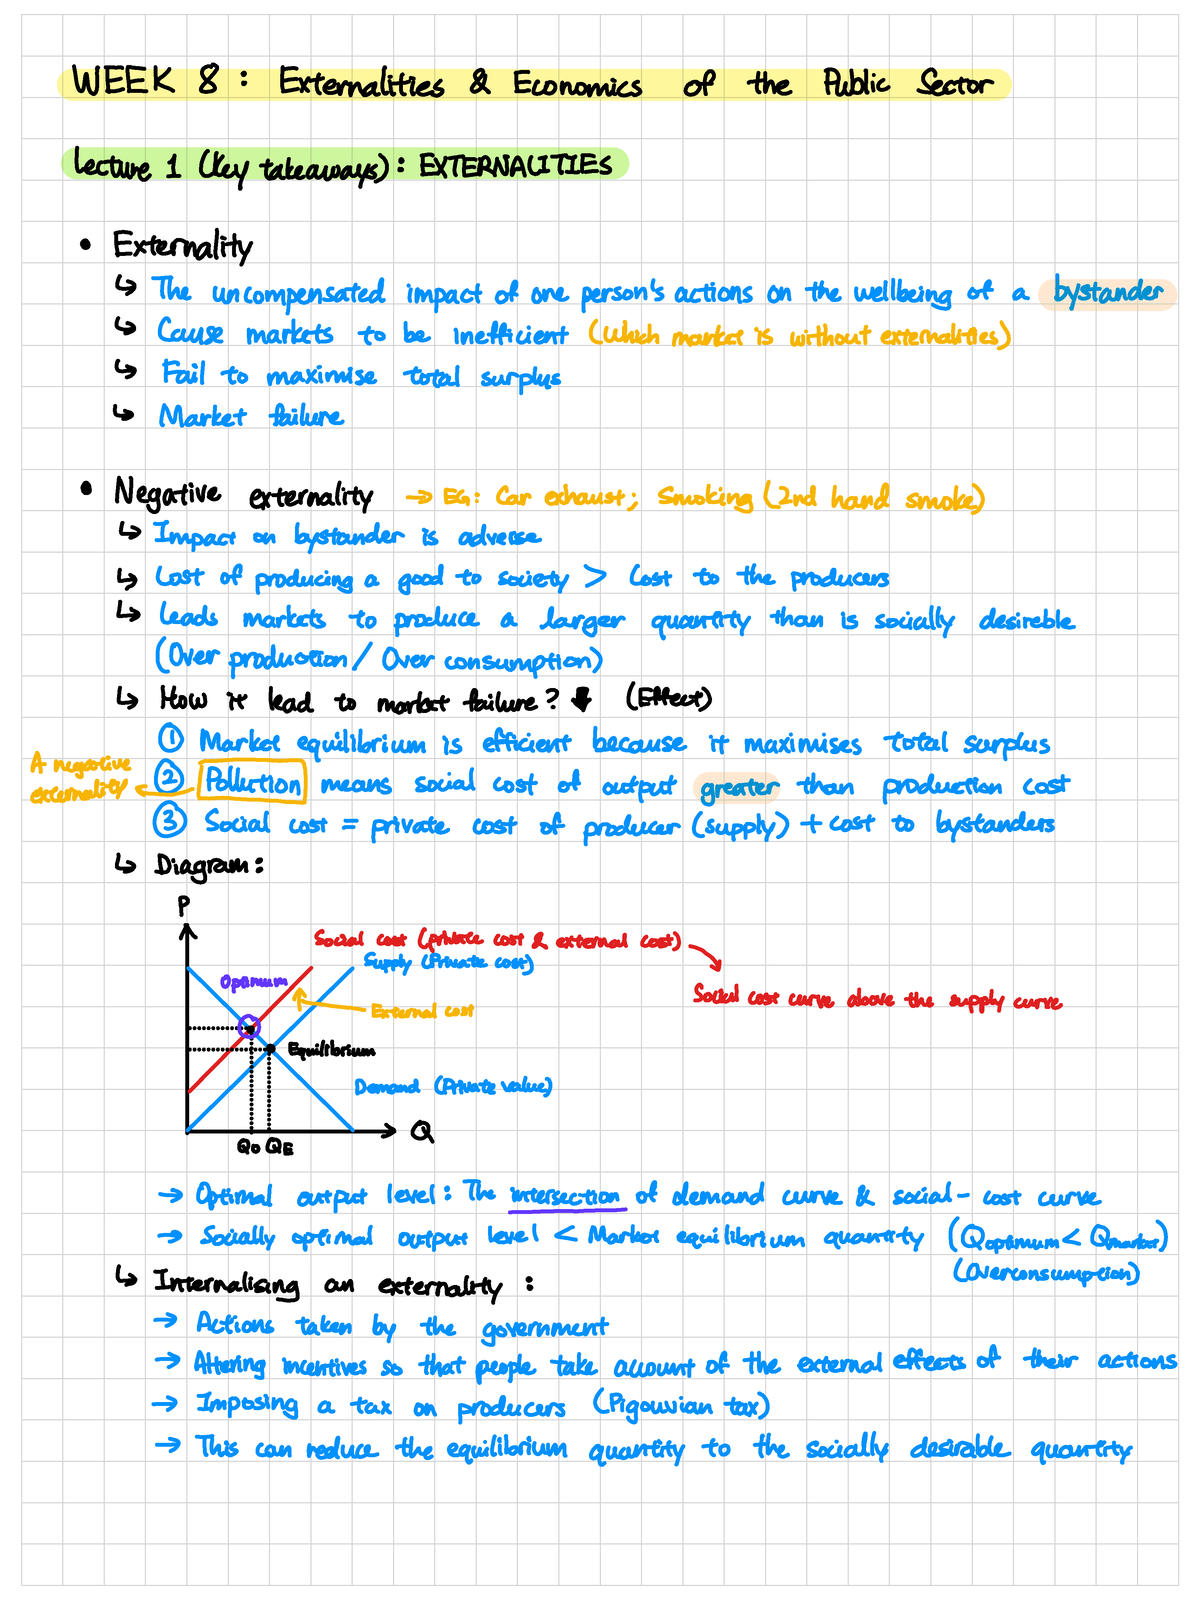 WEEK 8 : Externalities & Economics of the Public Sector
Lecture 1 (Key takeaways) : EXTERNALITIES
• Externality
↳ The uncompensated impact of one person's actions on the wellbeing of a bystander
↳ Cause markets to be inefficient (Which market is without externalities)
↳ Fail to maximise total surplus
↳ Market failure
• Negative externality → EG: Car exhaust; Smoking (2nd hand smoke)
↳ Impact on bystander is adverse
↳ Cost of producing a good to society > Cost to the producers
↳ Leads markets to produce a larger quantity than is socially desireble
(Over production / Over consumption)
↳ How it lead to market failure? ⬇ (Effect)
① Market equilibrium is efficient because it maximises total surplus
A negative externality ← ② Pollution means social cost of output greater than production cost
③ Social cost = private cost of producer (supply) + cost to bystanders
↳ Diagram :
P
Social cost (private cost & external cost)
Supply (Private cost)
Optimum
Social cost curve above the supply curve
External cost
Equilibrium
Demand (Private value)
Qo QE
Q
→ Optimal output level : The intersection of demand curve & social - cost curve
→ Socially optimal output level < Market equilibrium quantity (Qoptimum < Qmarket)
(Overconsumption)
↳ Internalising an externality :
→ Actions taken by the government
→ Altering incentives so that people take account of the external effects of their actions
→ Imposing a tax on producers (Pigouvian tax)
→ This can reduce the equilibrium quantity to the socially desirable quantity